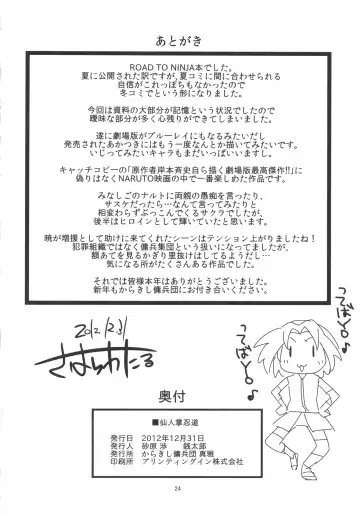 あとがき
ROAD TO NINJA本でした。
夏に公開された訳ですが、夏コミに間に合わせられる
自信がこれっぽちもなかったので
冬コミでという形になりました。
今回は資料の大部分が記憶という状況でしたので
曖昧な部分が多く心残りができてしまいました。
遂に劇場版がブルーレイにもなるみたいだし
発売されたあかつきにはもう一度なんとか描いてみたいです。
いじってみたいキャラもまだいっぱいいますし。
キャッチコピーの「原作者岸本斉史自ら描く劇場版最高傑作!!」に
偽りはなくNARUTO映画の中で一番楽しめた作品です。
みなしごのナルトに両親の愚痴を言ったり、
サスケだったら…なんて言ってみたりと
相変わらずぶっこんでくるサクラでしたが、
後半はヒロインとして輝いていたと思います。
暁が増援として助けに来てくれたシーンはテンション上がりましたね!
犯罪組織ではなく傭兵集団という扱いになってましたが、
額あてを見るかぎり里抜けはしてるようだし…
気になる所がたくさんある作品でした。
それでは皆様本年はありがとうございました。
新年もからきし傭兵団にお付き合いください。
2012.12.31
さはらわたる
ってばYO!
ってばYO!
奥付
■仙人掌忍道
発行日 2012年12月31日
発行人 砂原 渉 銭太郎
発行所 からきし傭兵団 真雅
印刷所 プリンティングイン株式会社
24